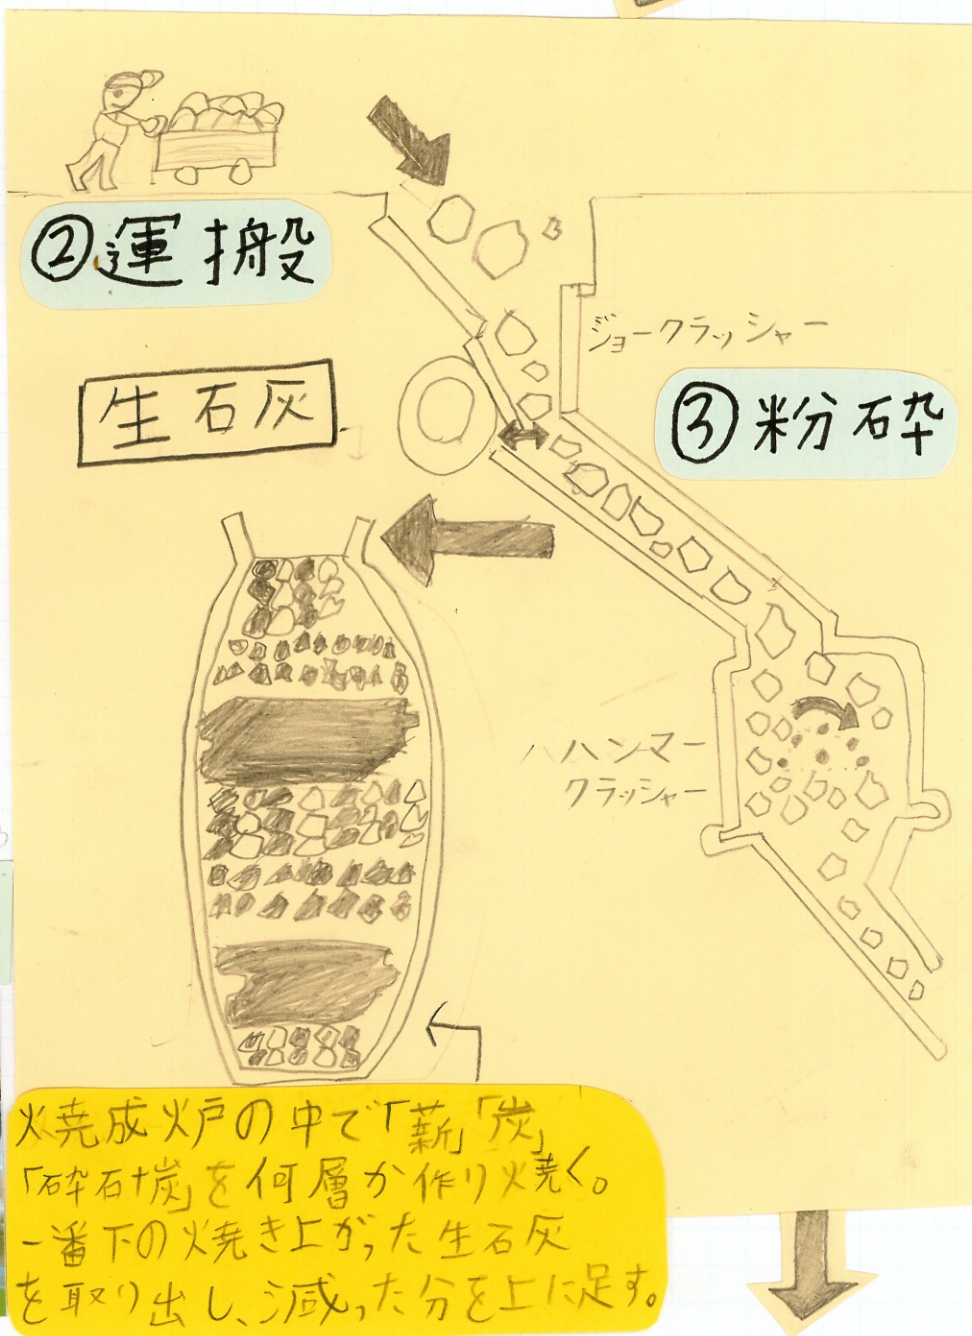 ②運搬
ジョークラッシャー
生石灰
③粉砕
ハンマー
クラッシャー
焼成炉の中で「薪」「炭」
「砕石+炭」を何層か作り焼く。
一番下の焼き上がった生石灰
を取り出し、減った分を上に足す。